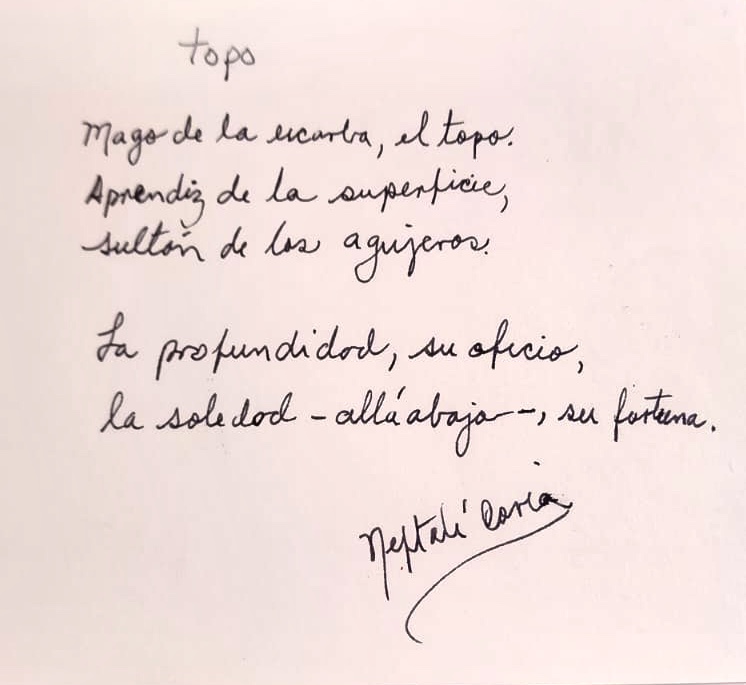 topo
Mago de la escarba, el topo.
Aprendiz de la superficie,
sultán de los agujeros.
La profundidad, su oficio,
la soledad - allá abajo -, su fortuna.
Neftalí Coria